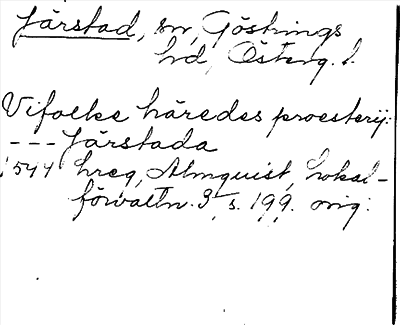 Järstad, sn, Göstrings
hd, Österg. l.
Vifolke häredes proesterij:
--- Järstada
1544 hreg, Almquist, Lokal-
förvaltn. 3, s. 199. orig.